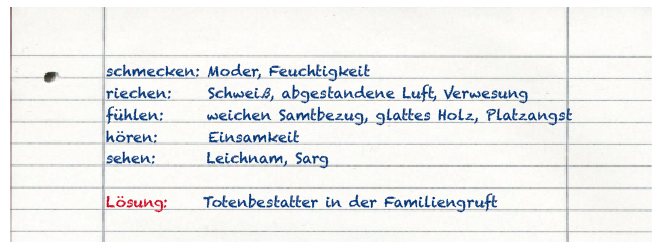 schmecken: Moder, Feuchtigkeit
riechen: Schweiß, abgestandene Luft, Verwesung
fühlen: weichen Samtbezug, glattes Holz, Platzangst
hören: Einsamkeit
sehen: Leichnam, Sarg
Lösung: Totenbestatter in der Familiengruft